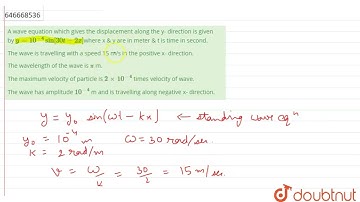 646668536
A wave equation which gives the displacement along the y- direction is given
by y = 10⁻⁴ sin[30t − 2x] where x & y are in meter & t is time in second.
The wave is travelling with a speed 15 m/s in the positive x- direction.
The wavelength of the wave is π m.
The maximum velocity of particle is 2 × 10⁻⁴ times velocity of wave.
The wave has amplitude 10⁻⁴ m and is travelling along negative x- direction.
y = y₀ sin(ωt − kx) ← standard wave eqⁿ
y₀ = 10⁻⁴ m ω = 30 rad/sec.
k = 2 rad/m
v = ω/k = 30/2 = 15 m/sec.
doubtnut